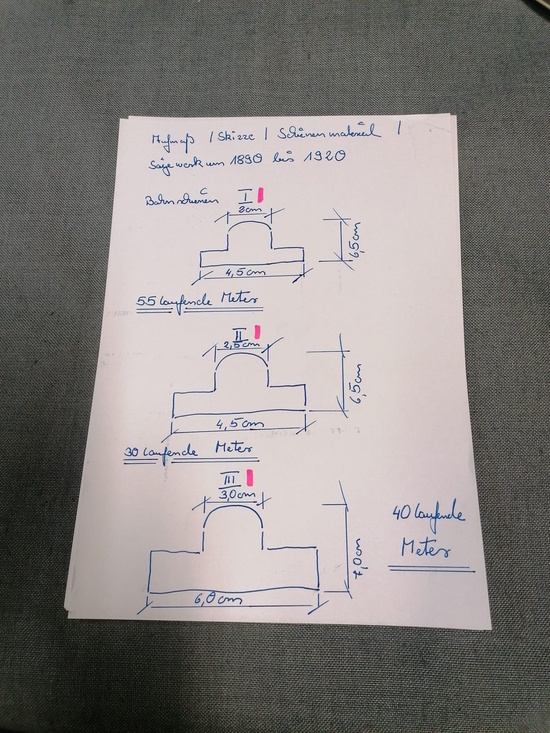 Aufmaß | Skizze | Schienenmaterial |
Sägewerk um 1890 bis 1920
Bahnschienen
I
2cm
6,5cm
4,5cm
55 laufende Meter
II
2,5cm
6,5cm
4,5cm
30 laufende Meter
III
3,0cm
7,0cm
6,0cm
40 laufende
Meter